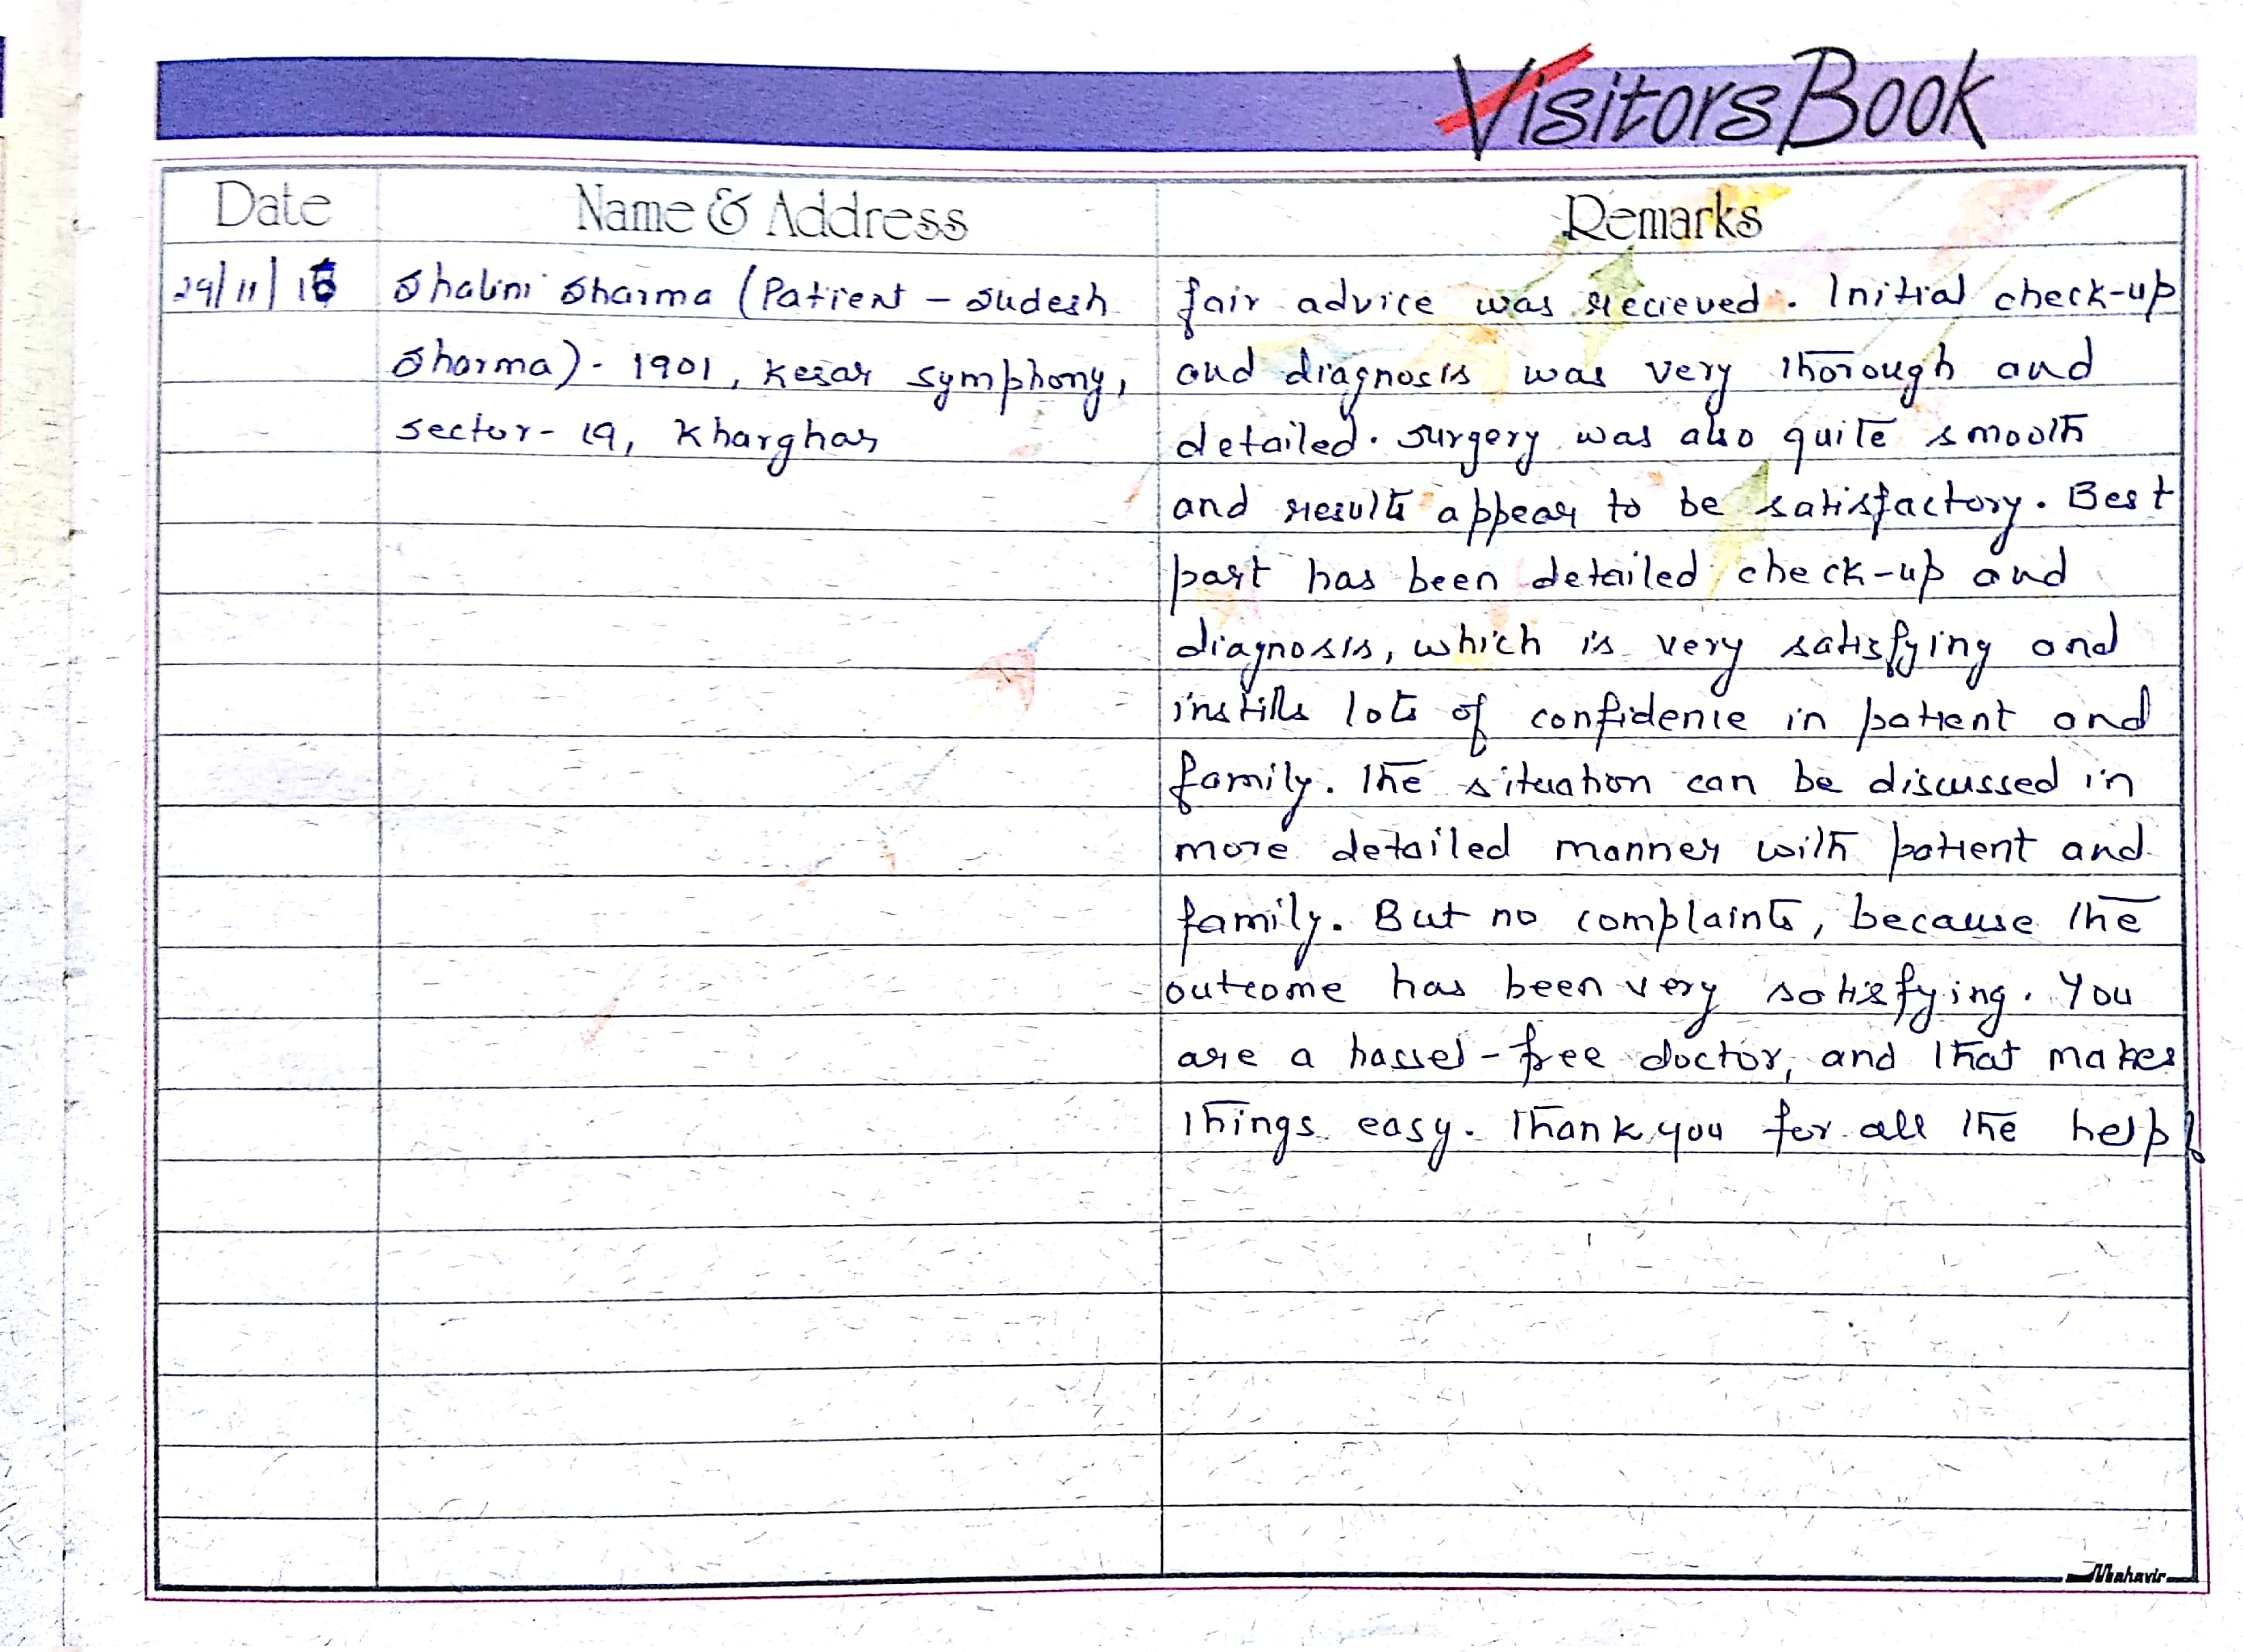 Visitors Book
Date Name & Address Remarks
29/11/16 Shalini Sharma (Patient - Sudesh fair advice was recieved. Initial check-up
Sharma) - 1901, Kesar symphony, and diagnosis was very thorough and
sector - 19, Kharghar detailed. Surgery was also quite smooth
and results appear to be satisfactory. Best
part has been detailed check-up and
diagnosis, which is very satisfying and
instills lots of confidence in patient and
family. The situation can be discussed in
more detailed manner with patient and
family. But no complaints, because the
outcome has been very satisfying. You
are a hassel-free doctor, and that makes
things easy. Thank you for all the help!
Mahavir